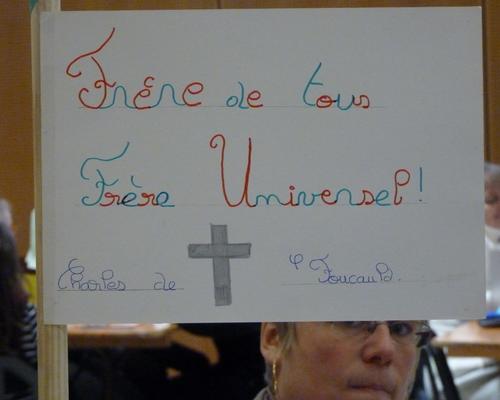 Frère de tous
Frère Universel !
Charles de Foucauld.